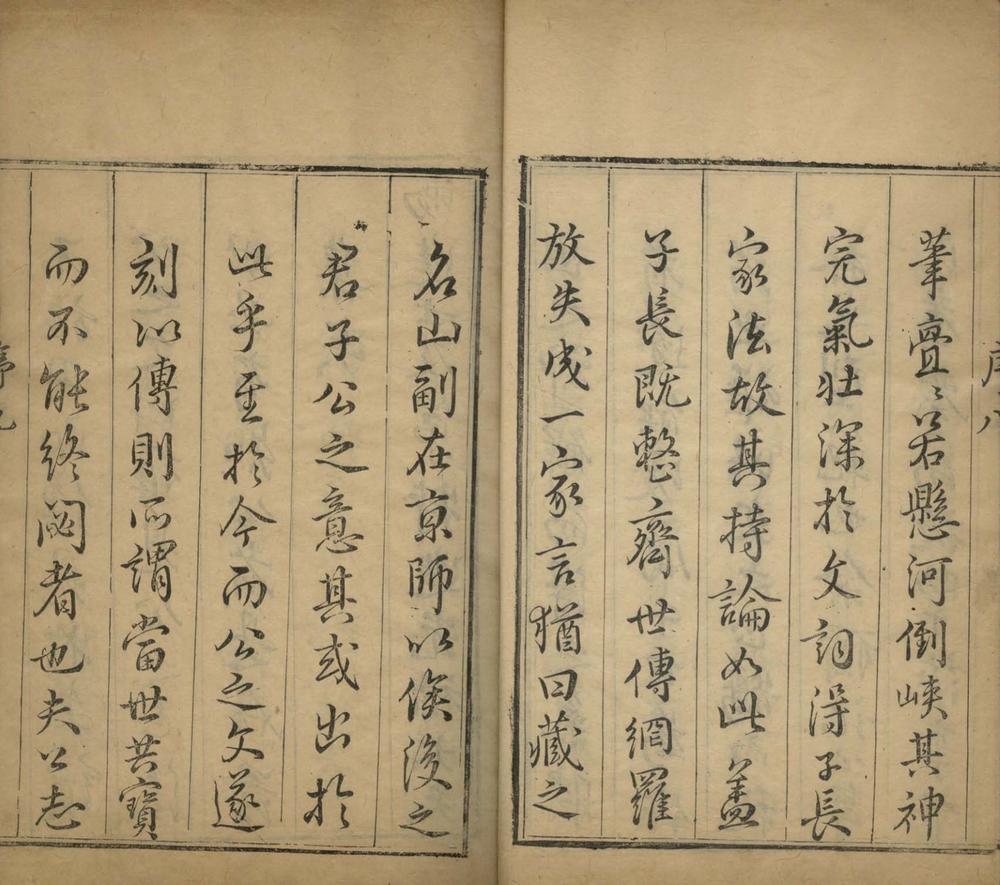 序八
筆亹〻若懸河倒峽其神
完氣壯深於文詞得子長
家法故其持論如此蓋
子長既整齊世傳網羅
放失成一家言猶曰藏之
名山副在京師以俟後之
君子公之意其或出於
此乎至於今而公之文遂
刻以傳則所謂當世共寶
而不能終閟者也夫公志
序九